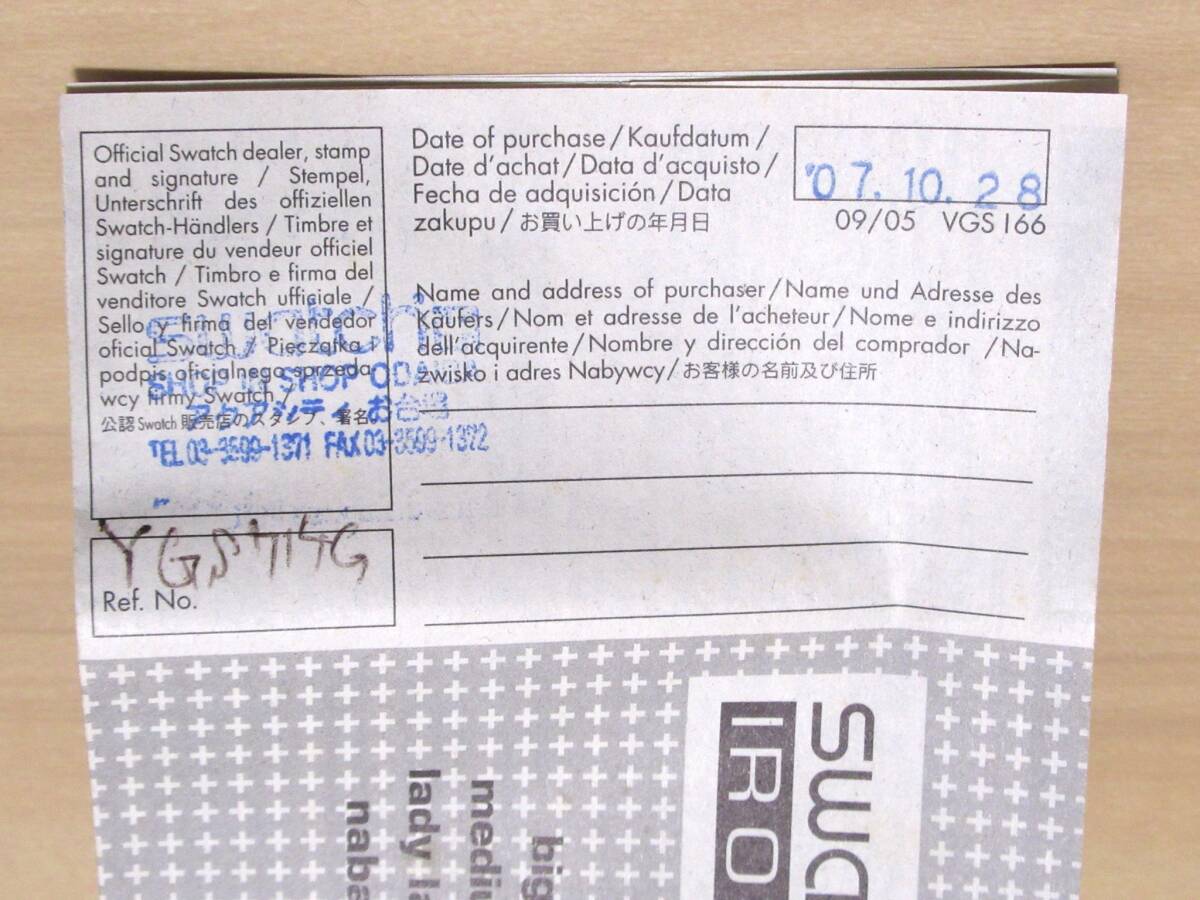 Official Swatch dealer, stamp
and signature / Stempel,
Unterschrift des offiziellen
Swatch-Händlers / Timbre et
signature du vendeur officiel
Swatch / Timbro e firma del
venditore Swatch ufficiale /
Sello y firma del vendedor
oficial Swatch / Pieczątka i
podpis oficjalnego sprzeda-
wcy firmy Swatch /
公認Swatch販売店のスタンプ、署名
swatch
SHOP in SHOP ODAIBA
アクアシティお台場
TEL 03-3599-1371 FAX 03-3599-1372
Ref. No.
Date of purchase / Kaufdatum /
Date d'achat / Data d'acquisto /
Fecha de adquisición / Data
zakupu / お買い上げの年月日
'07. 10. 28
09/05 VGS 166
Name and address of purchaser / Name und Adresse des
Käufers / Nom et adresse de l'acheteur / Nome e indirizzo
dell'acquirente / Nombre y dirección del comprador / Na-
zwisko i adres Nabywcy / お客様の名前及び住所
swa
IRO
big
mediu
lady la
naba